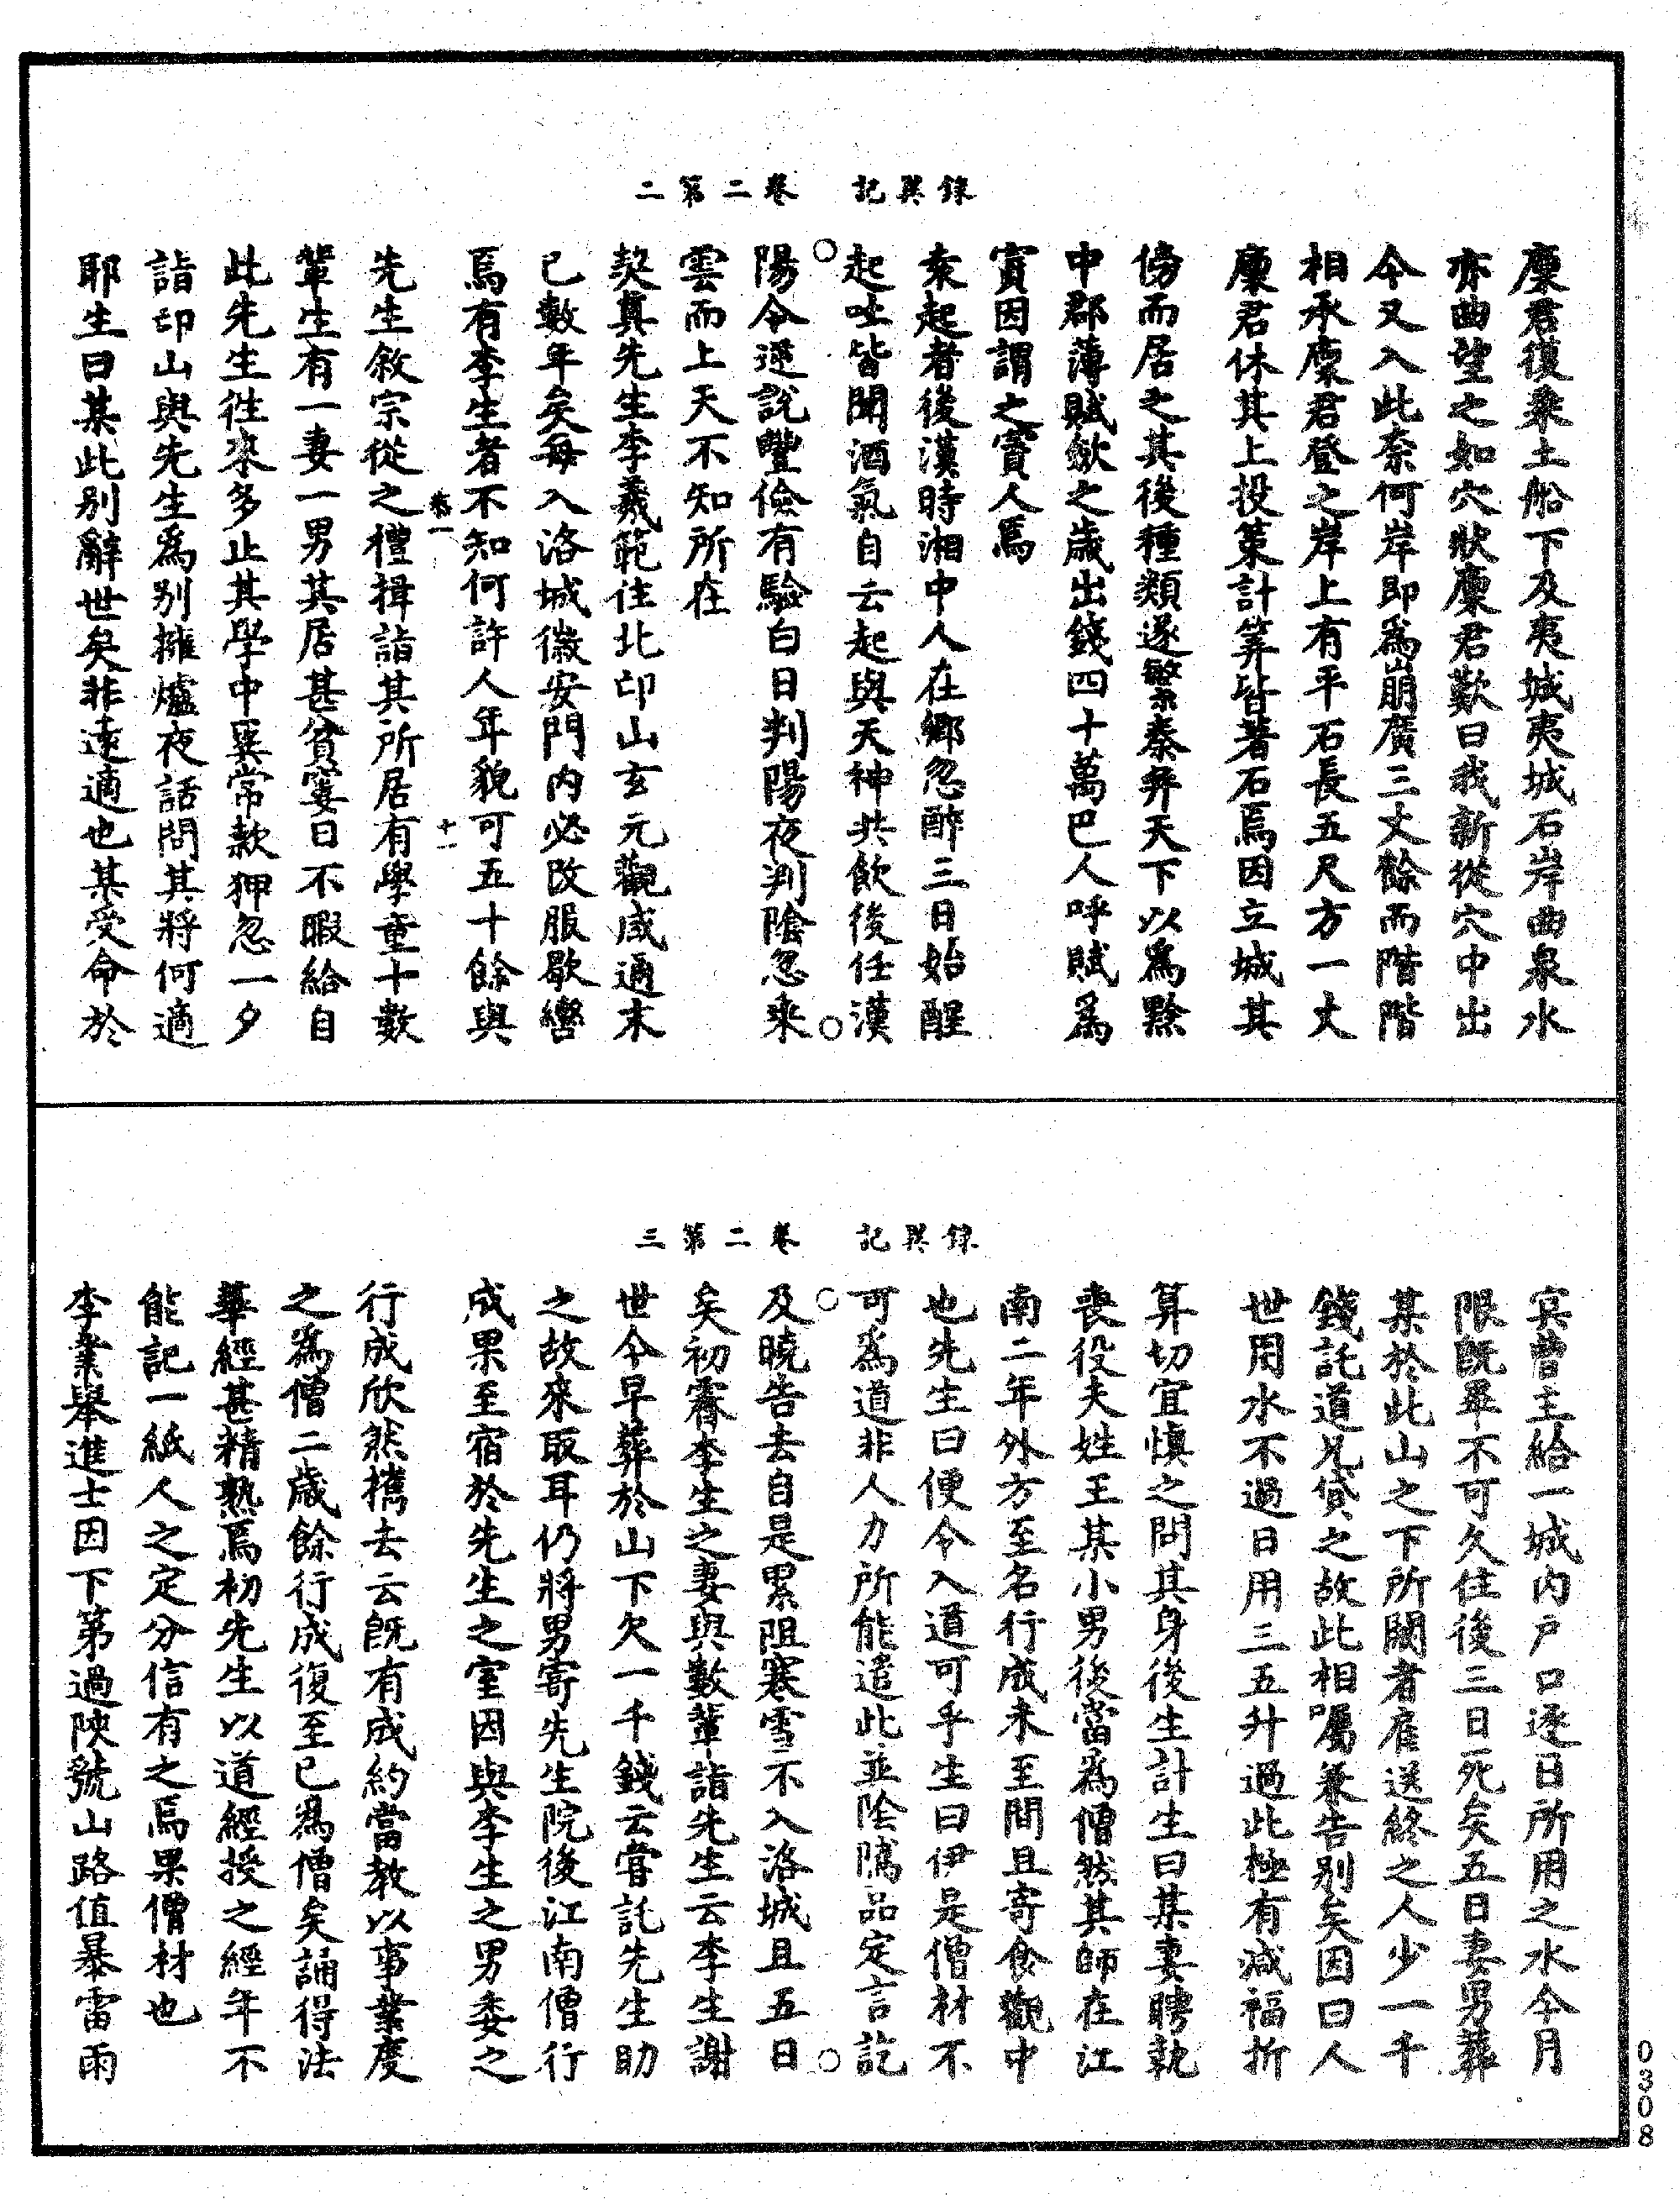 錄異記　卷二第二
廩君復乘土船下及夷城夷城石岸曲泉水
亦曲望之如穴狀廩君歎曰我新從穴中出
今又入此柰何岸即爲崩廣三丈餘而階階
相承廩君登之岸上有平石長五尺方一丈
廩君休其上投策計筭皆著石焉因立城其
傍而居之其後種類遂繁秦并天下以爲黔
中郡薄賦斂之歲出錢四十萬巴人呼賦爲
賨因謂之賨人焉
桼起者後漢時湘中人在鄉忽醉三日始醒
起吐皆聞酒氣自云起與天神共飲後任漢
陽令逆說豐儉有驗白日判陽夜判陰忽乘
雲而上天不知所在
契真先生李義範住北邙山玄元觀咸通末
已數年矣每入洛城徽安門内必改服歇轡
焉有李生者不知何許人年貌可五十餘與
卷一　十一
先生敘宗從之禮揖詣其所居有學童十數
輩生有一妻一男其居甚貧窶日不暇給自
此先生徃來多止其學中異常款狎忽一夕
詣邙山與先生爲别擁爐夜話問其將何適
耶生曰某此别辭世矣非遠適也某受命於
錄異記　卷二第三
冥曹主給一城内戶口逐日所用之水今月
限旣畢不可久住後三日死矣五日妻男葬
某於此山之下所闕者雇送終之人少一千
錢託道兄貸之故此相囑兼告别矣因曰人
世用水不過日用三五升過此極有減福折
算切宜慎之問其身後生計生曰某妻聘執
喪役夫姓王某小男後當爲僧然其師在江
南二年外方至名行成未至間且寄食觀中
也先生曰便令入道可乎生曰伊是僧材不
可爲道非人力所能遣此並陰隲品定言訖
及曉告去自是累阻寒雪不入洛城且五日
矣初霽李生之妻與數輩詣先生云李生謝
世今早葬於山下欠一千錢云嘗託先生助
之故來取耳仍將男寄先生院後江南僧行
成果至宿於先生之室因與李生之男委之
行成欣然攜去云旣有成約當教以事業度
之爲僧二歲餘行成復至已爲僧矣誦得法
華經甚精熟焉初先生以道經授之經年不
能記一紙人之定分信有之焉果僧材也
李業舉進士因下第過陝虢山路值暴雷雨
0308